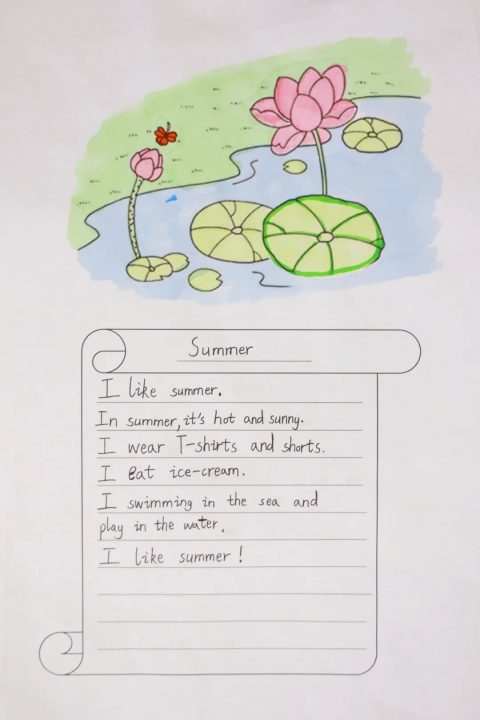 Summer
I like summer.
In summer, it's hot and sunny.
I wear T-shirts and shorts.
I eat ice-cream.
I swimming in the sea and
play in the water.
I like summer!